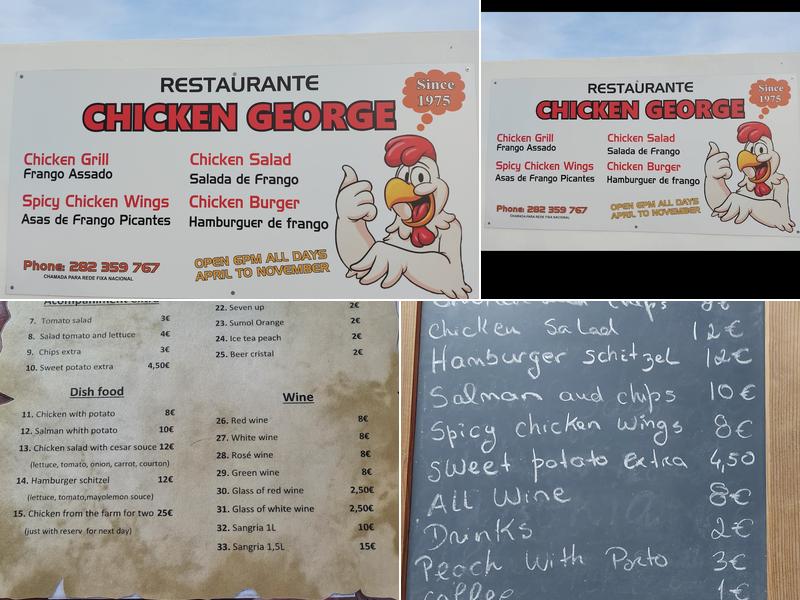 RESTAURANTE
CHICKEN GEORGE
Since
1975
Chicken Grill
Frango Assado
Chicken Salad
Salada de Frango
Spicy Chicken Wings
Asas de Frango Picantes
Chicken Burger
Hamburguer de frango
Phone: 282 359 767
CHAMADA PARA REDE FIXA NACIONAL
OPEN 6PM ALL DAYS
APRIL TO NOVEMBER
RESTAURANTE
CHICKEN GEORGE
Since
1975
Chicken Grill
Frango Assado
Chicken Salad
Salada de Frango
Spicy Chicken Wings
Asas de Frango Picantes
Chicken Burger
Hamburguer de frango
Phone: 282 359 767
CHAMADA PARA REDE FIXA NACIONAL
OPEN 6PM ALL DAYS
APRIL TO NOVEMBER
Acompaniment extra
7. Tomato salad 3€
8. Salad tomato and lettuce 4€
9. Chips extra 3€
10. Sweet potato extra 4,50€
Dish food
11. Chicken with potato 8€
12. Salman whith potato 10€
13. Chicken salad with cesar souce 12€
(lettuce, tomato, onion, carrot, courton)
14. Hamburger schitzel 12€
(lettuce, tomato,mayolemon souce)
15. Chicken from the farm for two 25€
(just with reserv for next day)
22. Seven up 2€
23. Sumol Orange 2€
24. Ice tea peach 2€
25. Beer cristal 2€
Wine
26. Red wine 8€
27. White wine 8€
28. Rosé wine 8€
29. Green wine 8€
30. Glass of red wine 2,50€
31. Glass of white wine 2,50€
32. Sangria 1L 10€
33. Sangria 1,5L 15€
chips 8€
Chicken Salad 12€
Hamburger schitzel 12€
Salman and chips 10€
Spicy chicken wings 8€
Sweet potato extra 4,50
All Wine 8€
Drunks 2€
Peach With Porto 3€
coffee 1€